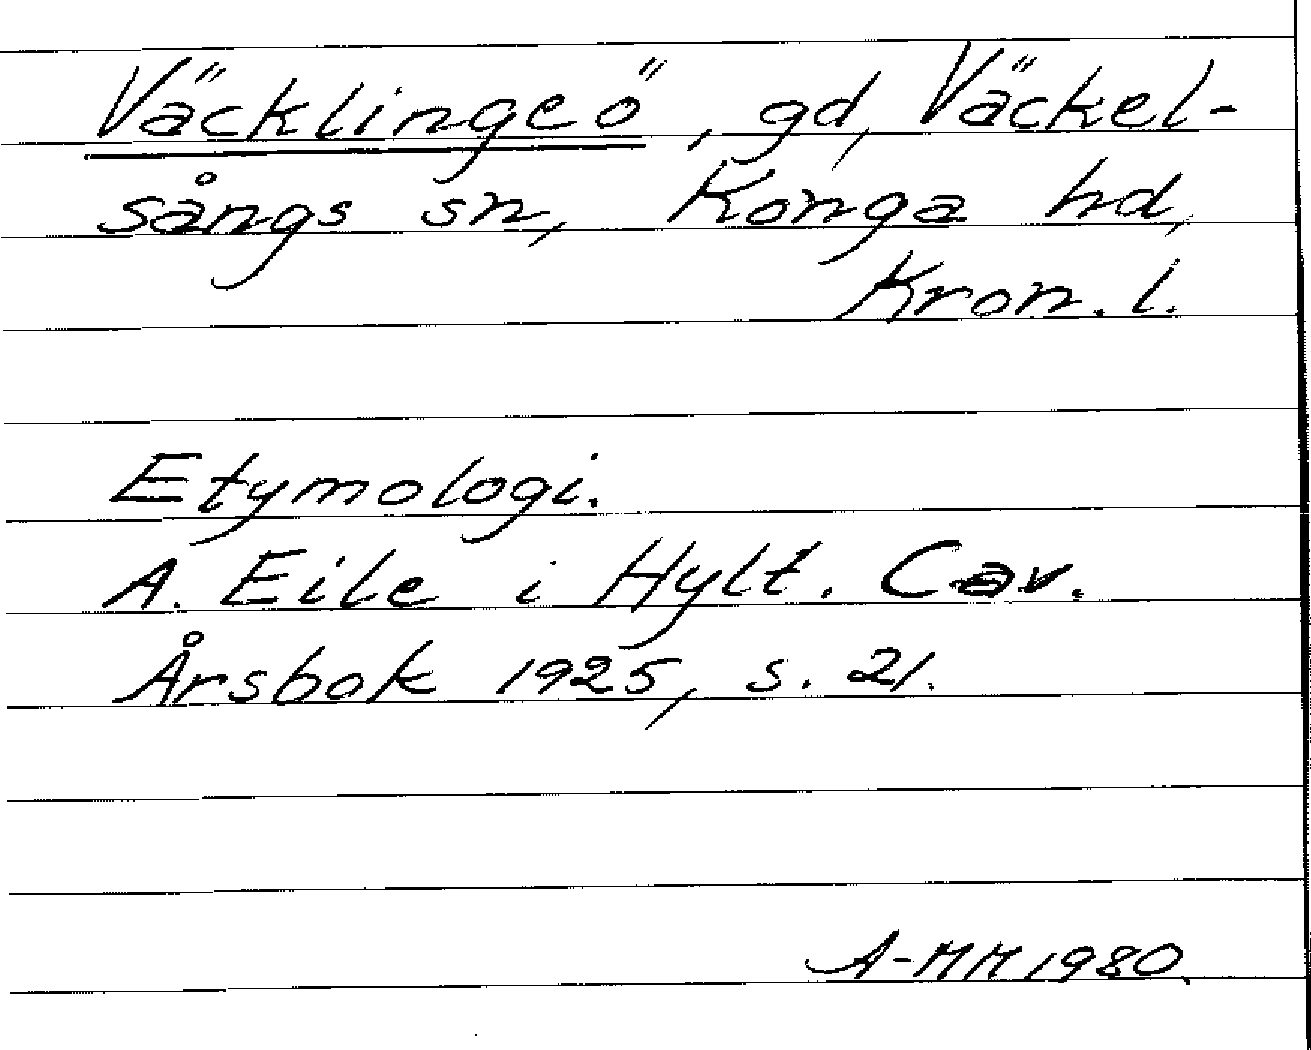 Väcklingeö, gd, Väckel-
sångs sn, Konga hd,
Kron. l.
Etymologi.
A. Eile i Hylt. Cav.
Årsbok 1925, s. 21.
A-MM 1980.